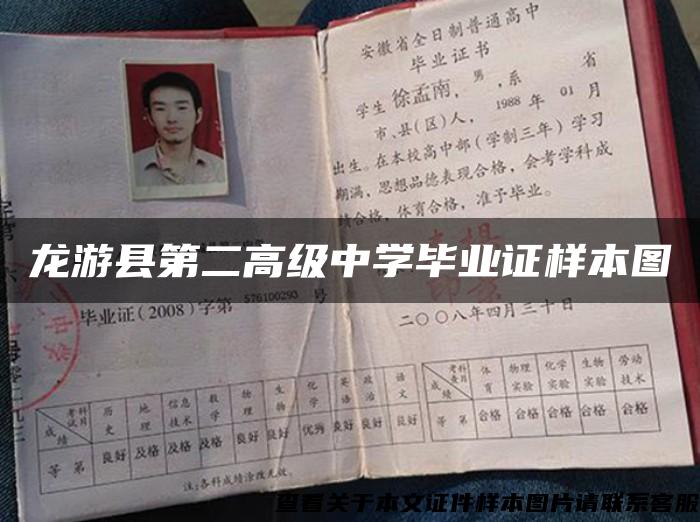 安徽省全日制普通高中
毕业证书
学生徐孟南,男,系 省
市、县(区)人,1988年01月
出生。在本校高中部(学制三年)学习
期满,思想品德表现合格,会考学科成
绩合格,体育合格,准予毕业。
龙游县第二高级中学毕业证样本图
毕业证(2008)字第576100293号
二〇〇八年四月三十日
考试科目 历史 地理 信息技术 数学 物理 生物 化学 英语 政治 语文
成绩
等第 良好 及格 及格 及格 良好 良好 优秀 良好 良好 良好
注:各科成绩涂改无效。
考查科目 体育 物理实验 化学实验 生物实验 劳动技术
成绩
等第 合格 合格 合格 合格 合格
查看关于本文证件样本图片请联系客服